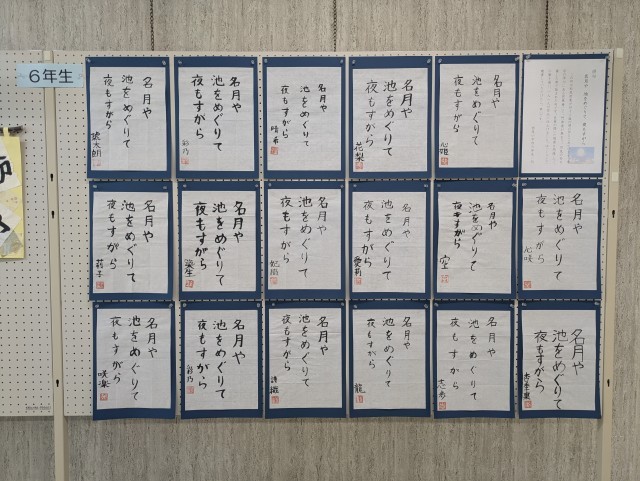 6年生
名月や
池をめぐりて
夜もすがら
名月や
池をめぐりて
夜もすがら
彩乃
名月や
池をめぐりて
夜もすがら
晴希
名月や
池をめぐりて
夜もすがら
花梨
名月や
池をめぐりて
夜もすがら
心姫
名月や
池をめぐりて
夜もすがら
莉子
名月や
池をめぐりて
夜もすがら
名月や
池をめぐりて
夜もすがら
名月や
池をめぐりて
夜もすがら
愛莉
名月や
池をめぐりて
夜もすがら
空
名月や
池をめぐりて
夜もすがら
心咲
名月や
池をめぐりて
夜もすがら
咲楽
名月や
池をめぐりて
夜もすがら
彩乃
名月や
池をめぐりて
夜もすがら
名月や
池をめぐりて
夜もすがら
龍
名月や
池をめぐりて
夜もすがら
志歩
名月や
池をめぐりて
夜もすがら